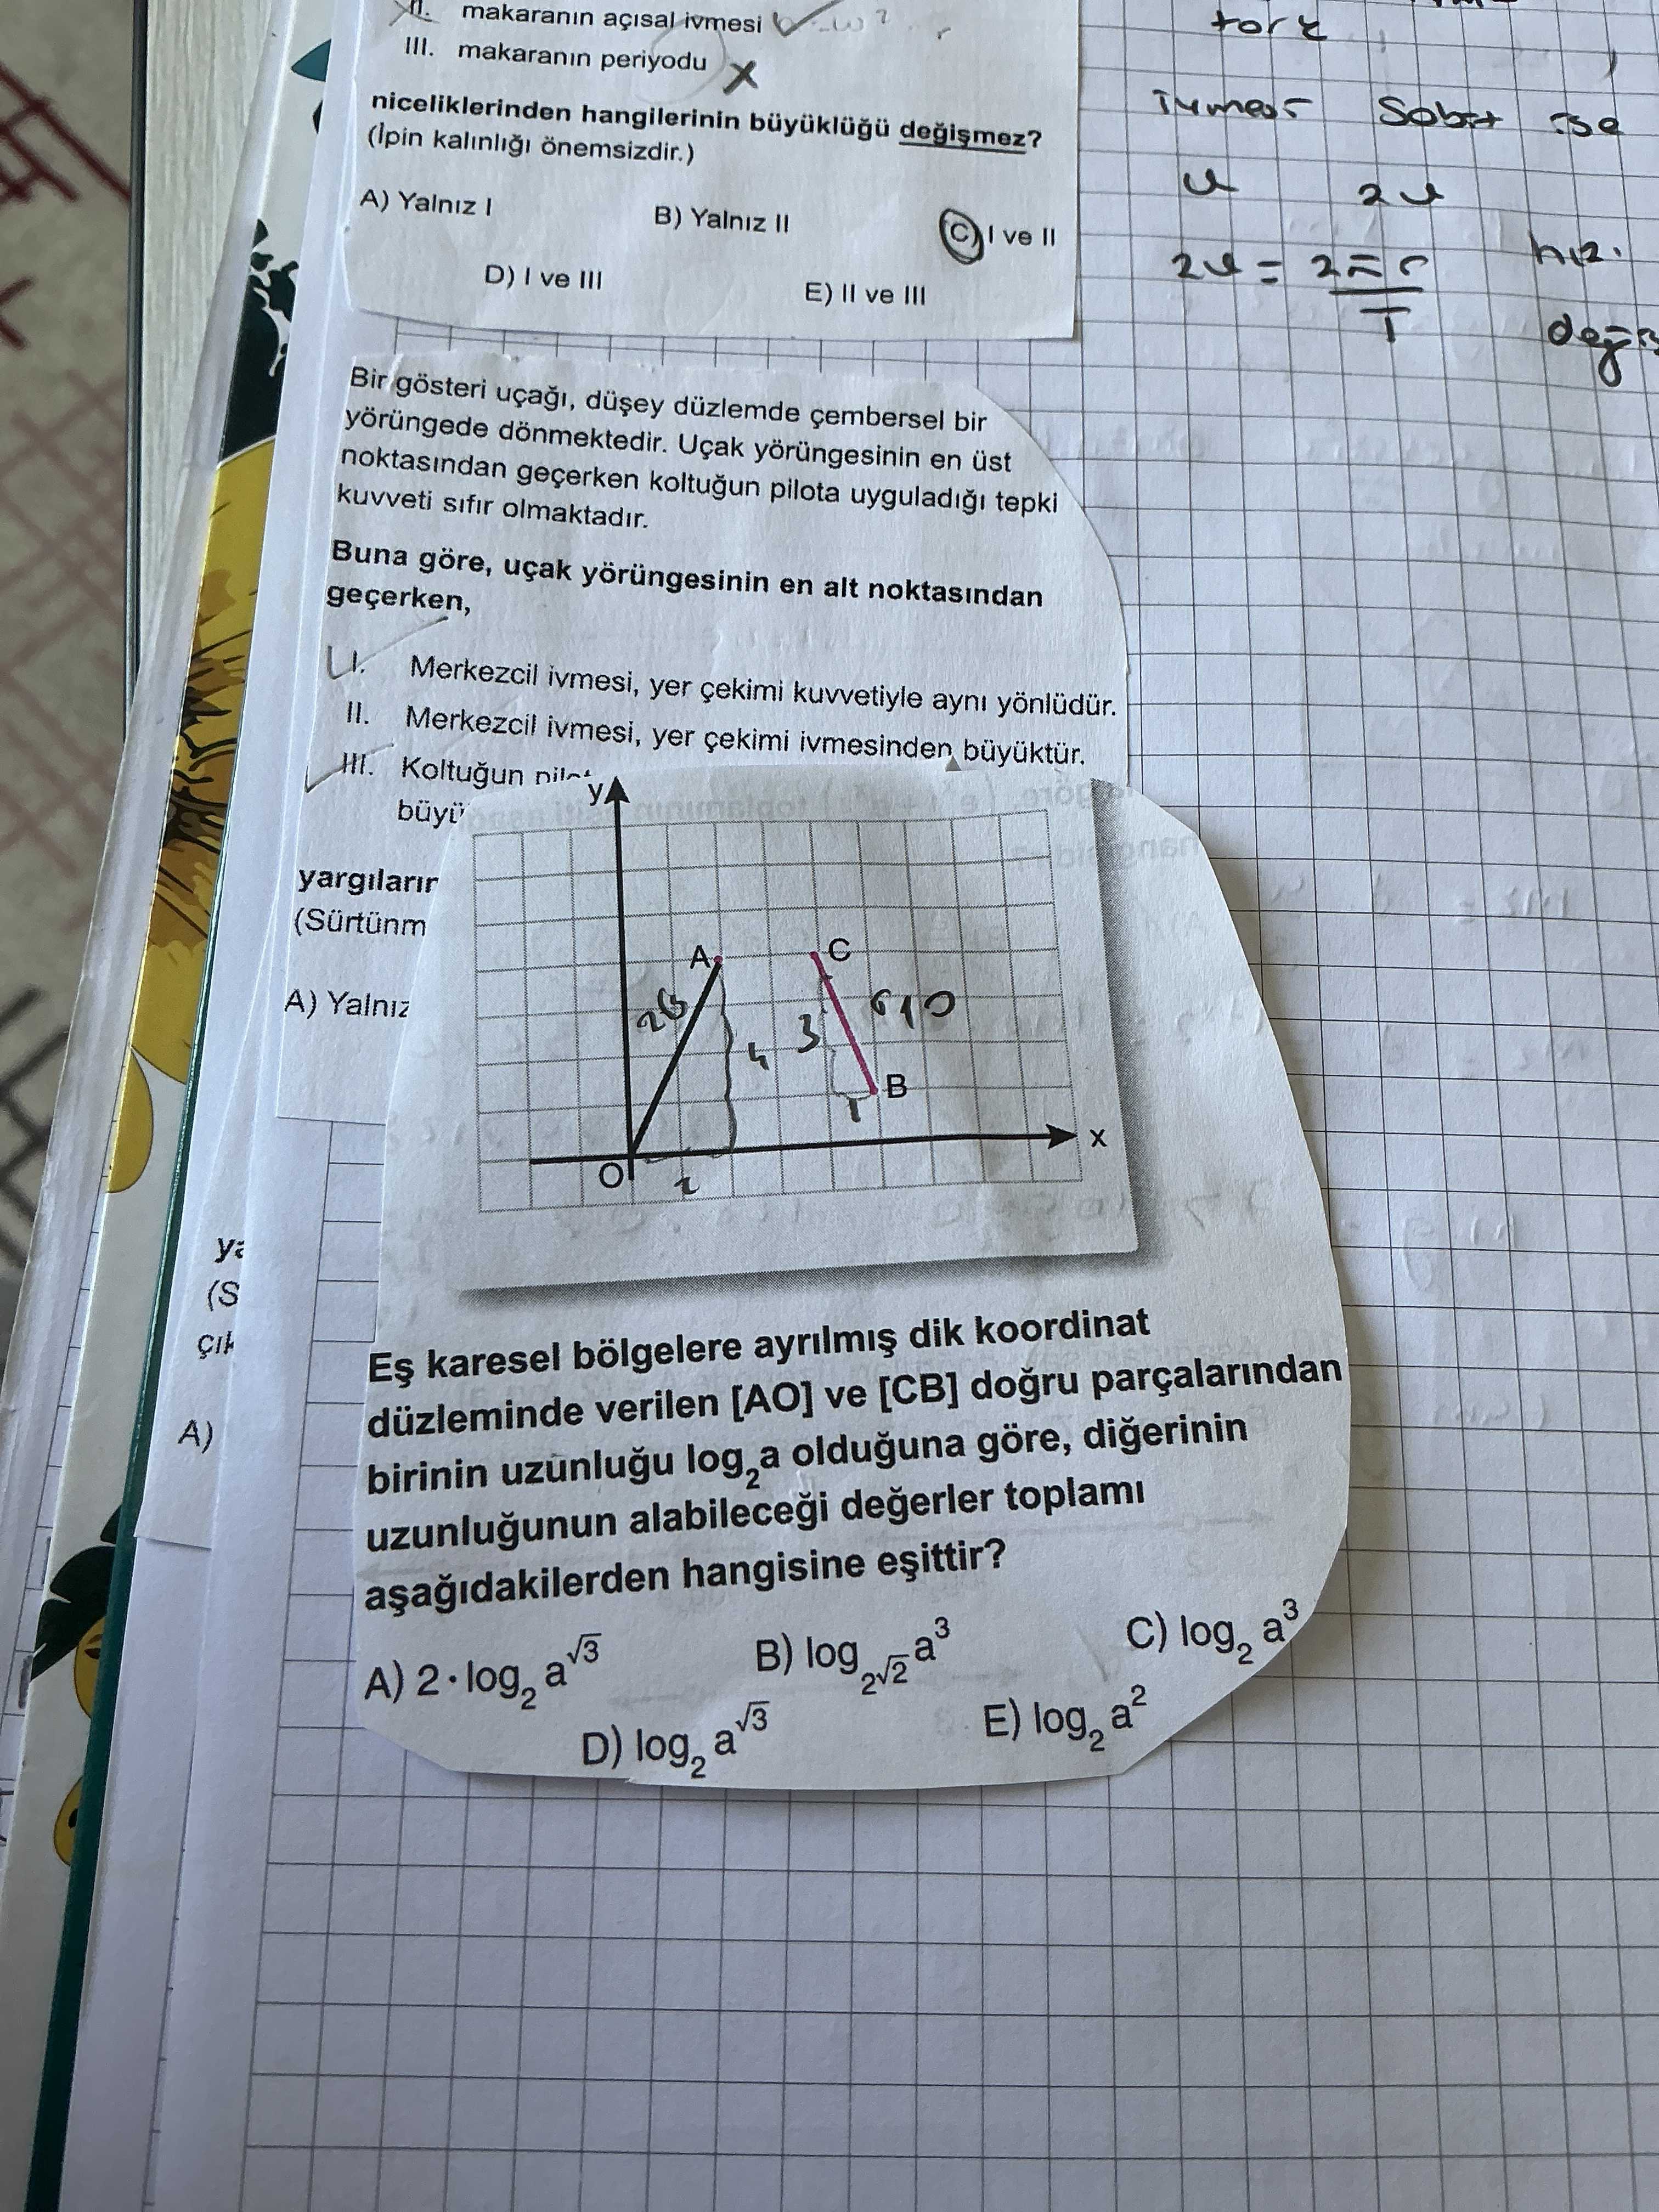 II. makaranın açısal ivmesi
III. makaranın periyodu
niceliklerinden hangilerinin büyüklüğü değişmez?
(İpin kalınlığı önemsizdir.)
A) Yalnız I
B) Yalnız II
C) I ve II
D) I ve III
E) II ve III
tork
ivmesi Sabit ise
2υ = 2πr
T
hız.
Bir gösteri uçağı, düşey düzlemde çembersel bir
yörüngede dönmektedir. Uçak yörüngesinin en üst
noktasından geçerken koltuğun pilota uyguladığı tepki
kuvveti sıfır olmaktadır.
Buna göre, uçak yörüngesinin en alt noktasından
geçerken,
I. Merkezcil ivmesi, yer çekimi kuvvetiyle aynı yönlüdür.
II. Merkezcil ivmesi, yer çekimi ivmesinden büyüktür.
III. Koltuğun
büyü
yargıların
(Sürtünm
A) Yalnız
ya
(S
çık
A)
y
A
C
4
3
B
1
x
O
2
Eş karesel bölgelere ayrılmış dik koordinat
düzleminde verilen [AO] ve [CB] doğru parçalarından
birinin uzunluğu log₂a olduğuna göre, diğerinin
uzunluğunun alabileceği değerler toplamı
aşağıdakilerden hangisine eşittir?
A) 2·log₂ a^√3
B) log_2√2 a³
C) log₂ a³
D) log₂ a^√3
E) log₂ a²